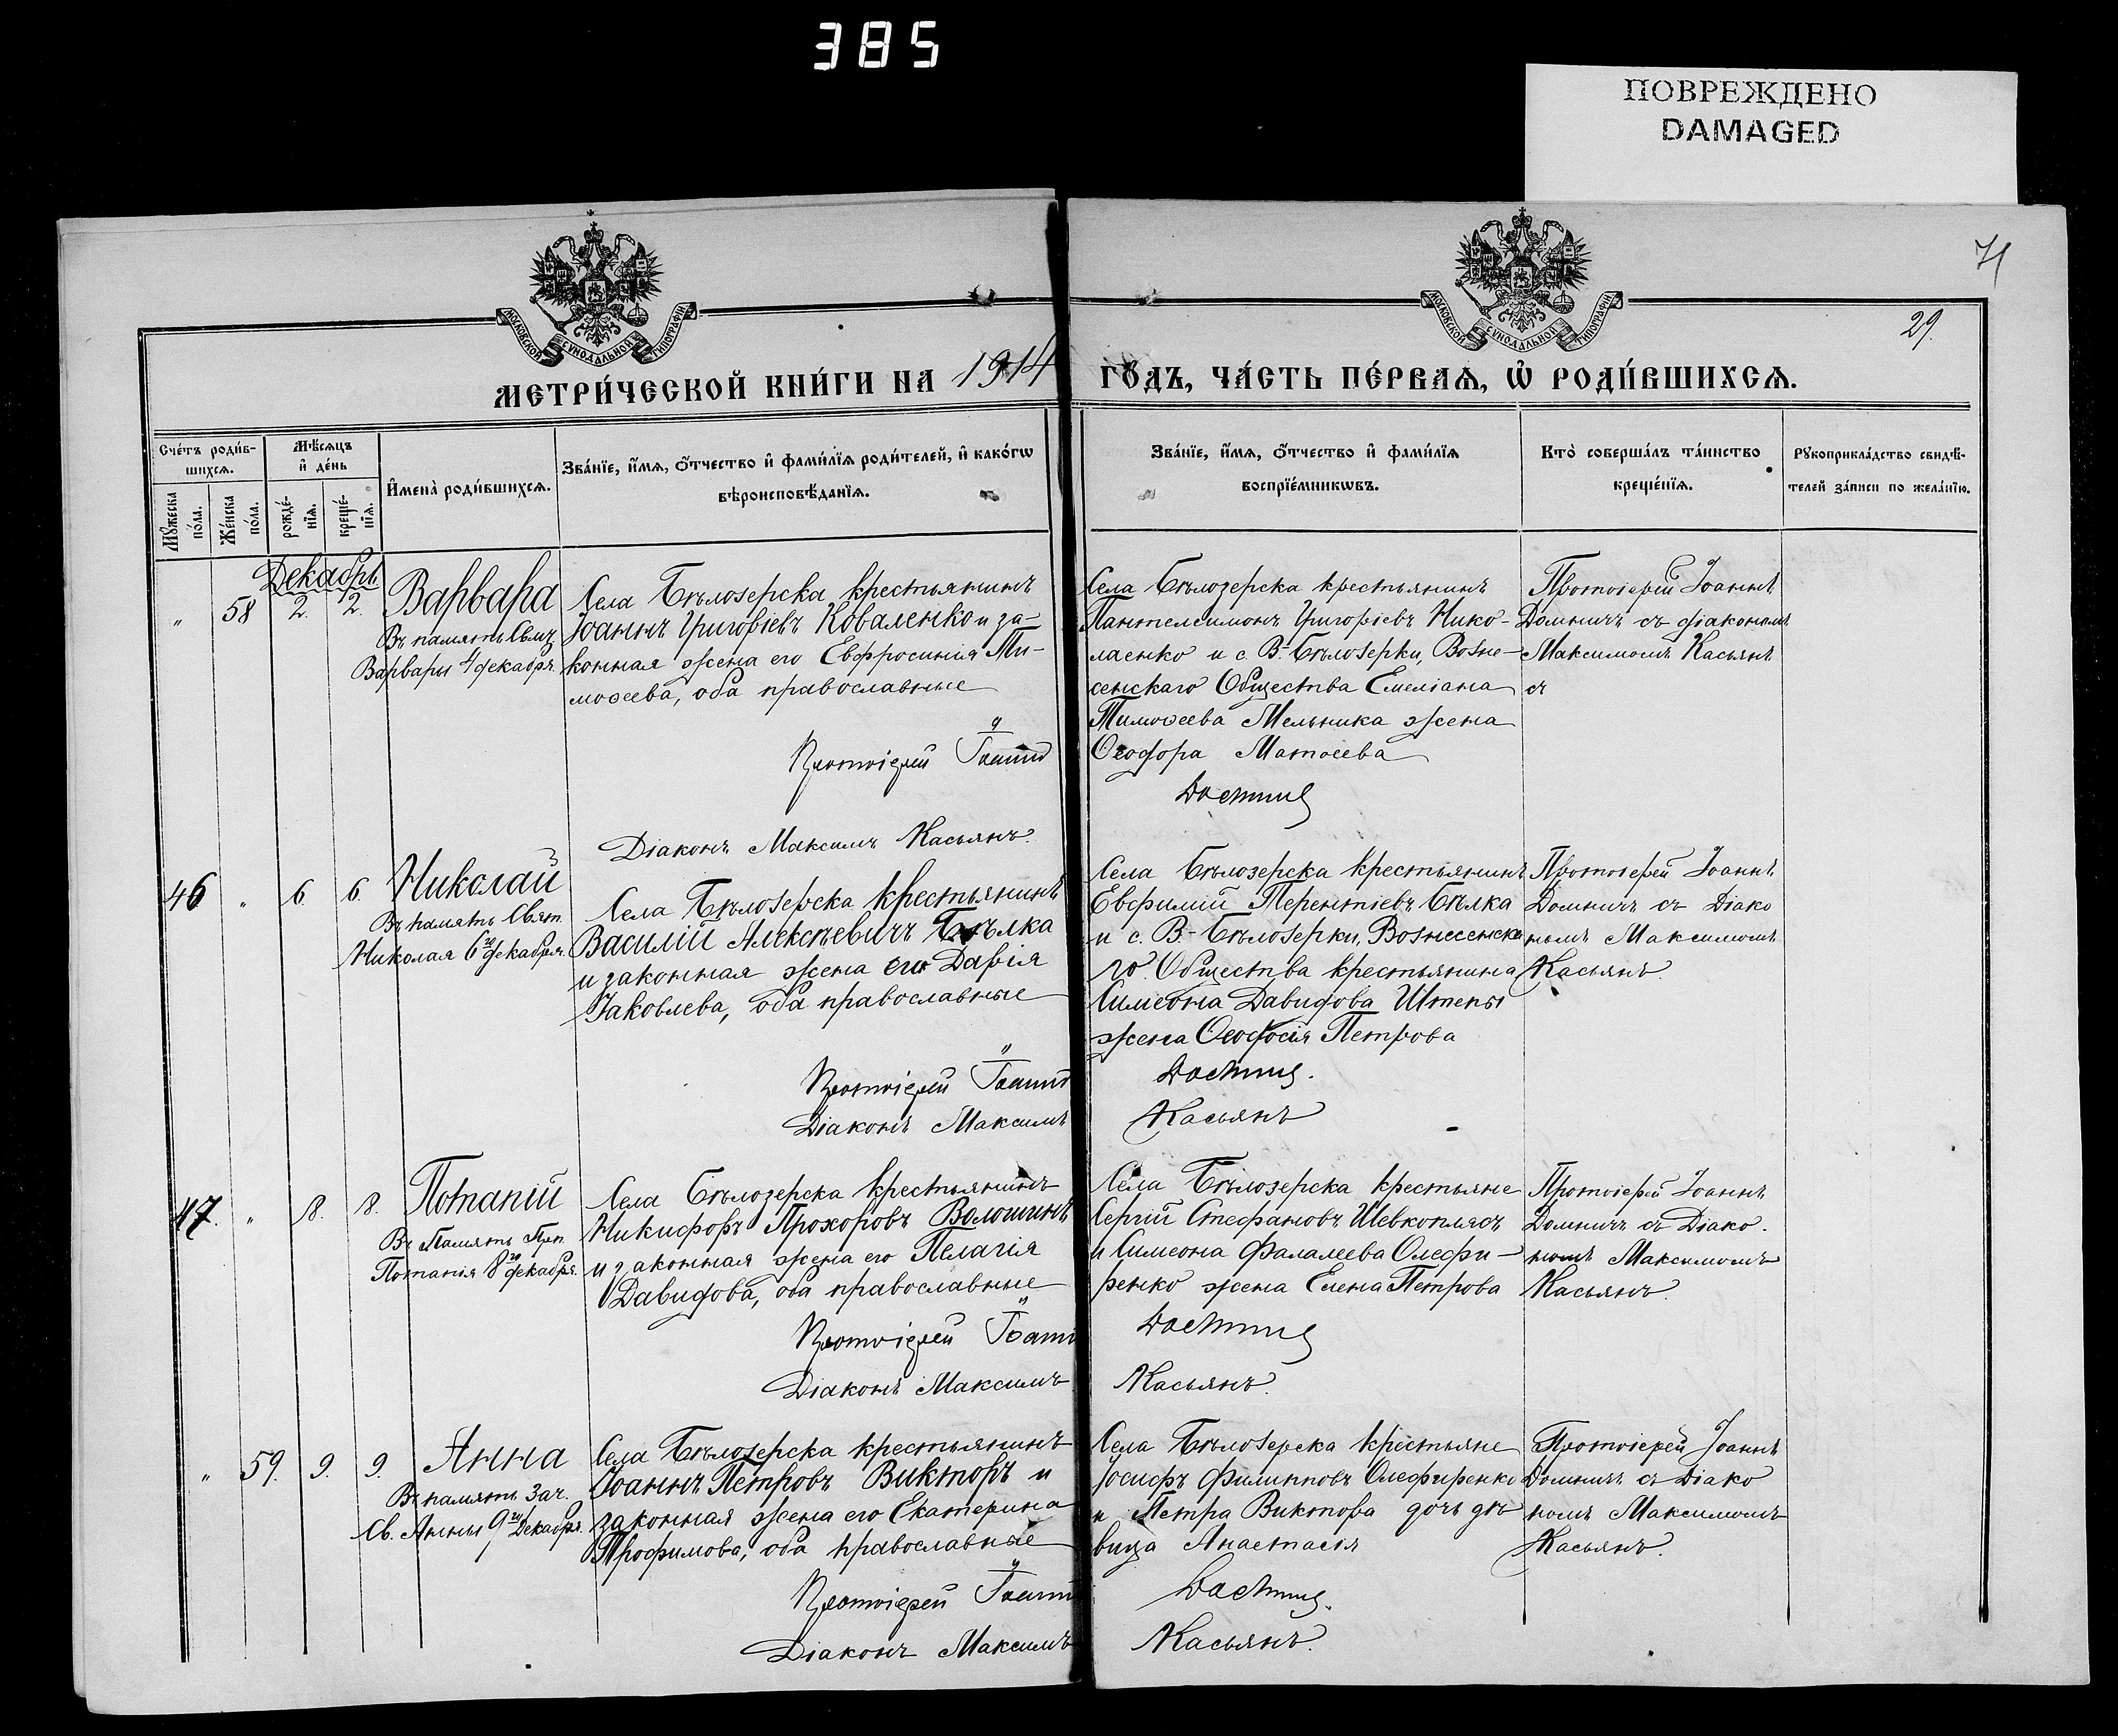 385
ПОВРЕЖДЕНО
DAMAGED
71
29.
МОСКОВСКОЙ СѴНОДАЛЬНОЙ ТИПОГРАФІИ
МОСКОВСКОЙ СѴНОДАЛЬНОЙ ТИПОГРАФІИ
МЕТРИ́ЧЕСКОЙ КНИ́ГИ НА 1914 ГО́ДЪ, ЧА́СТЬ ПЕ́РВАЯ, Ѡ҆ РОДИ́ВШИХСЯ.
Сче́тъ роди́вшихся.
Мѣ́сяцъ и҆ де́нь
Мꙋ́жеска по́ла.
Же́нска по́ла.
рожде́нїя.
креще́нїя.
И҆мена̀ роди́вшихся.
Зва́нїе, и҆́мя, ѻ҆́тчество и҆ фами́лїя роди́телей, и҆ како́гѡ
вѣроисповѣ́данїя.
Зва́нїе, и҆́мя, ѻ҆́тчество и҆ фами́лїя
воспрїе́мникѡвъ.
Кто̀ соверша́лъ та́инство
креще́нїя.
Рꙋкоприкла́дство свидѣ́-
телей за́писи по жела́нїю.
Декабрь
" 58 2. 2.
Варвара
Въ память Свмц.
Варвары 4 декабря.
Села Бѣлозерска крестьянинъ
Іоаннъ Григоріевъ Коваленко и за-
конная жена его Евфросинія Ти-
моѳеева, оба православные
Протоіерей Іоаннъ
Діаконъ Максимъ Касьянъ.
Села Бѣлозерска крестьянинъ
Пантелеимонъ Григоріевъ Нико-
лаенко и с. В.-Бѣлозерки, Возне-
сенскаго Общества Емеліана
Тимоѳеева Мельника жена
Ѳеодора Матѳеева
Протоіерей Іоаннъ
Домничъ съ діакономъ
Максимомъ Касьянъ
46 " 6. 6.
Николай
Въ память Свят.
Николая 6го декабря.
Села Бѣлозерска крестьянинъ
Василій Алексѣевичъ Бѣлка
и законная жена его Дарія
Іаковлева, оба православные
Протоіерей Іоаннъ
Діаконъ Максимъ Касьянъ
Села Бѣлозерска крестьянинъ
Евфимій Терентіевъ Бѣлка
и с. В.-Бѣлозерки, Вознесенска
го Общества крестьянина
Симеона Давидова Штепы
жена Ѳеодосія Петрова
Протоіерей Іоаннъ
Домничъ съ Діако
номъ Максимомъ
Касьянъ.
47. " 8. 8.
Потапій
Въ Память Преп.
Потапія 8го декабря.
Села Бѣлозерска крестьянинъ
Никифоръ Прохоровъ Волошинъ
и законная жена его Пелагія
Давидова, оба православные
Протоіерей Іоаннъ
Діаконъ Максимъ Касьянъ.
Села Бѣлозерска крестьяне
Сергій Стефановъ Шевкоплясъ
и Симеона Фалалеева Олефи-
ренко жена Елена Петрова
Протоіерей Іоаннъ
Домничъ съ Діако.
номъ Максимомъ
Касьянъ.
" 59. 9. 9.
Анна
Въ память Зач.
Св. Анны 9го Декабря.
Села Бѣлозерска крестьянинъ
Іоаннъ Петровъ Викторъ и
законная жена его Екатерина
Трофимова, оба православные
Протоіерей Іоаннъ
Діаконъ Максимъ Касьянъ.
Села Бѣлозерска крестьяне
Іосифъ Филипповъ Олефиренко
и Петра Виктова дочь дѣ
вица Анастасія
Протоіерей Іоаннъ
Домничъ съ Діако
номъ Максимомъ
Касьянъ.